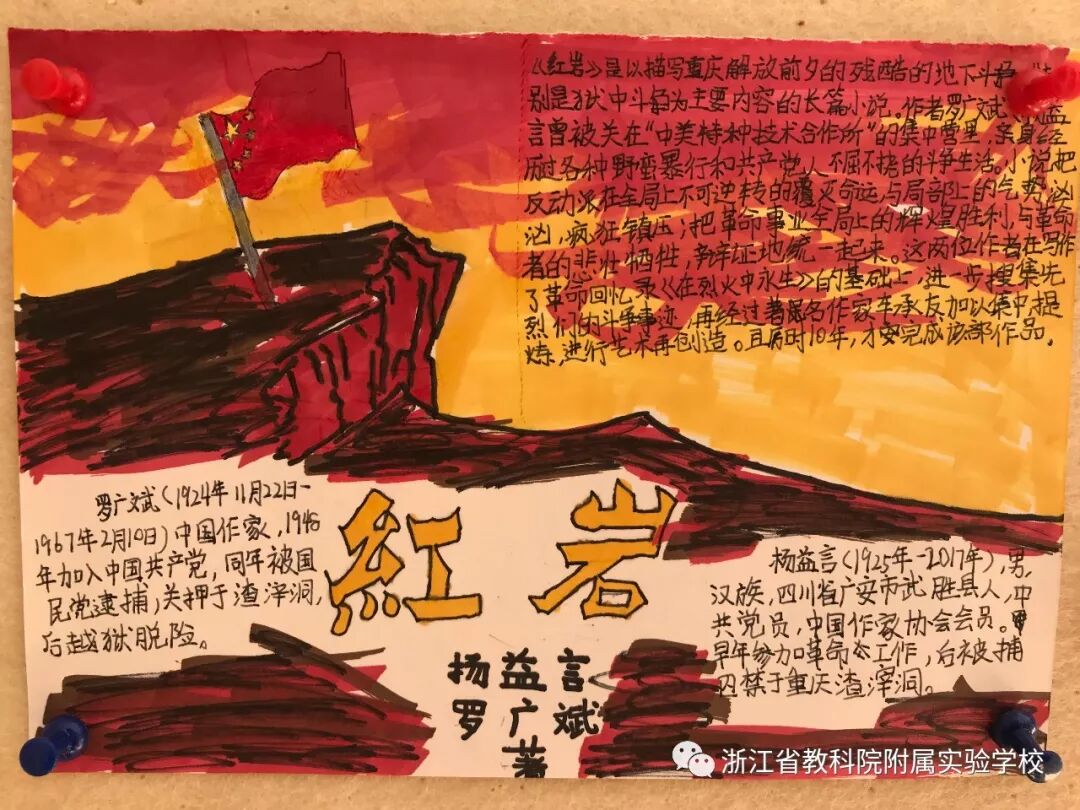 《红岩》是以描写重庆解放前夕的残酷的地下斗争,
别是狱中斗争为主要内容的长篇小说。作者罗广斌、益
言曾被关在“中美特种技术合作所”的集中营里,亲身经
历过各种野蛮暴行和共产党人不屈不挠的斗争生活。小说把
反动派在全局上不可逆转的覆灭命运与局部上的气势汹
汹,疯狂镇压;把革命事业全局上的辉煌胜利与革命
者的悲壮牺牲,辩证地统一起来。这两位作者在写作
了革命回忆录《在烈火中永生》的基础上进一步搜集先
烈们的斗争事迹,再经过著名作家车承友加以集中提
炼,进行艺术再创造。且历时10年,才完成该部作品。
罗广斌(1924年11月22日-
1967年2月10日)中国作家,1948
年加入中国共产党,同年被国
民党逮捕,关押于渣滓洞,
后越狱脱险。
紅岩
杨益言
罗广斌
著
杨益言(1925年-2017年),男,
汉族,四川省广安市武胜县人,中
共党员,中国作家协会会员。
早年参加革命工作,后被捕
囚禁于重庆渣滓洞。
浙江省教科院附属实验学校